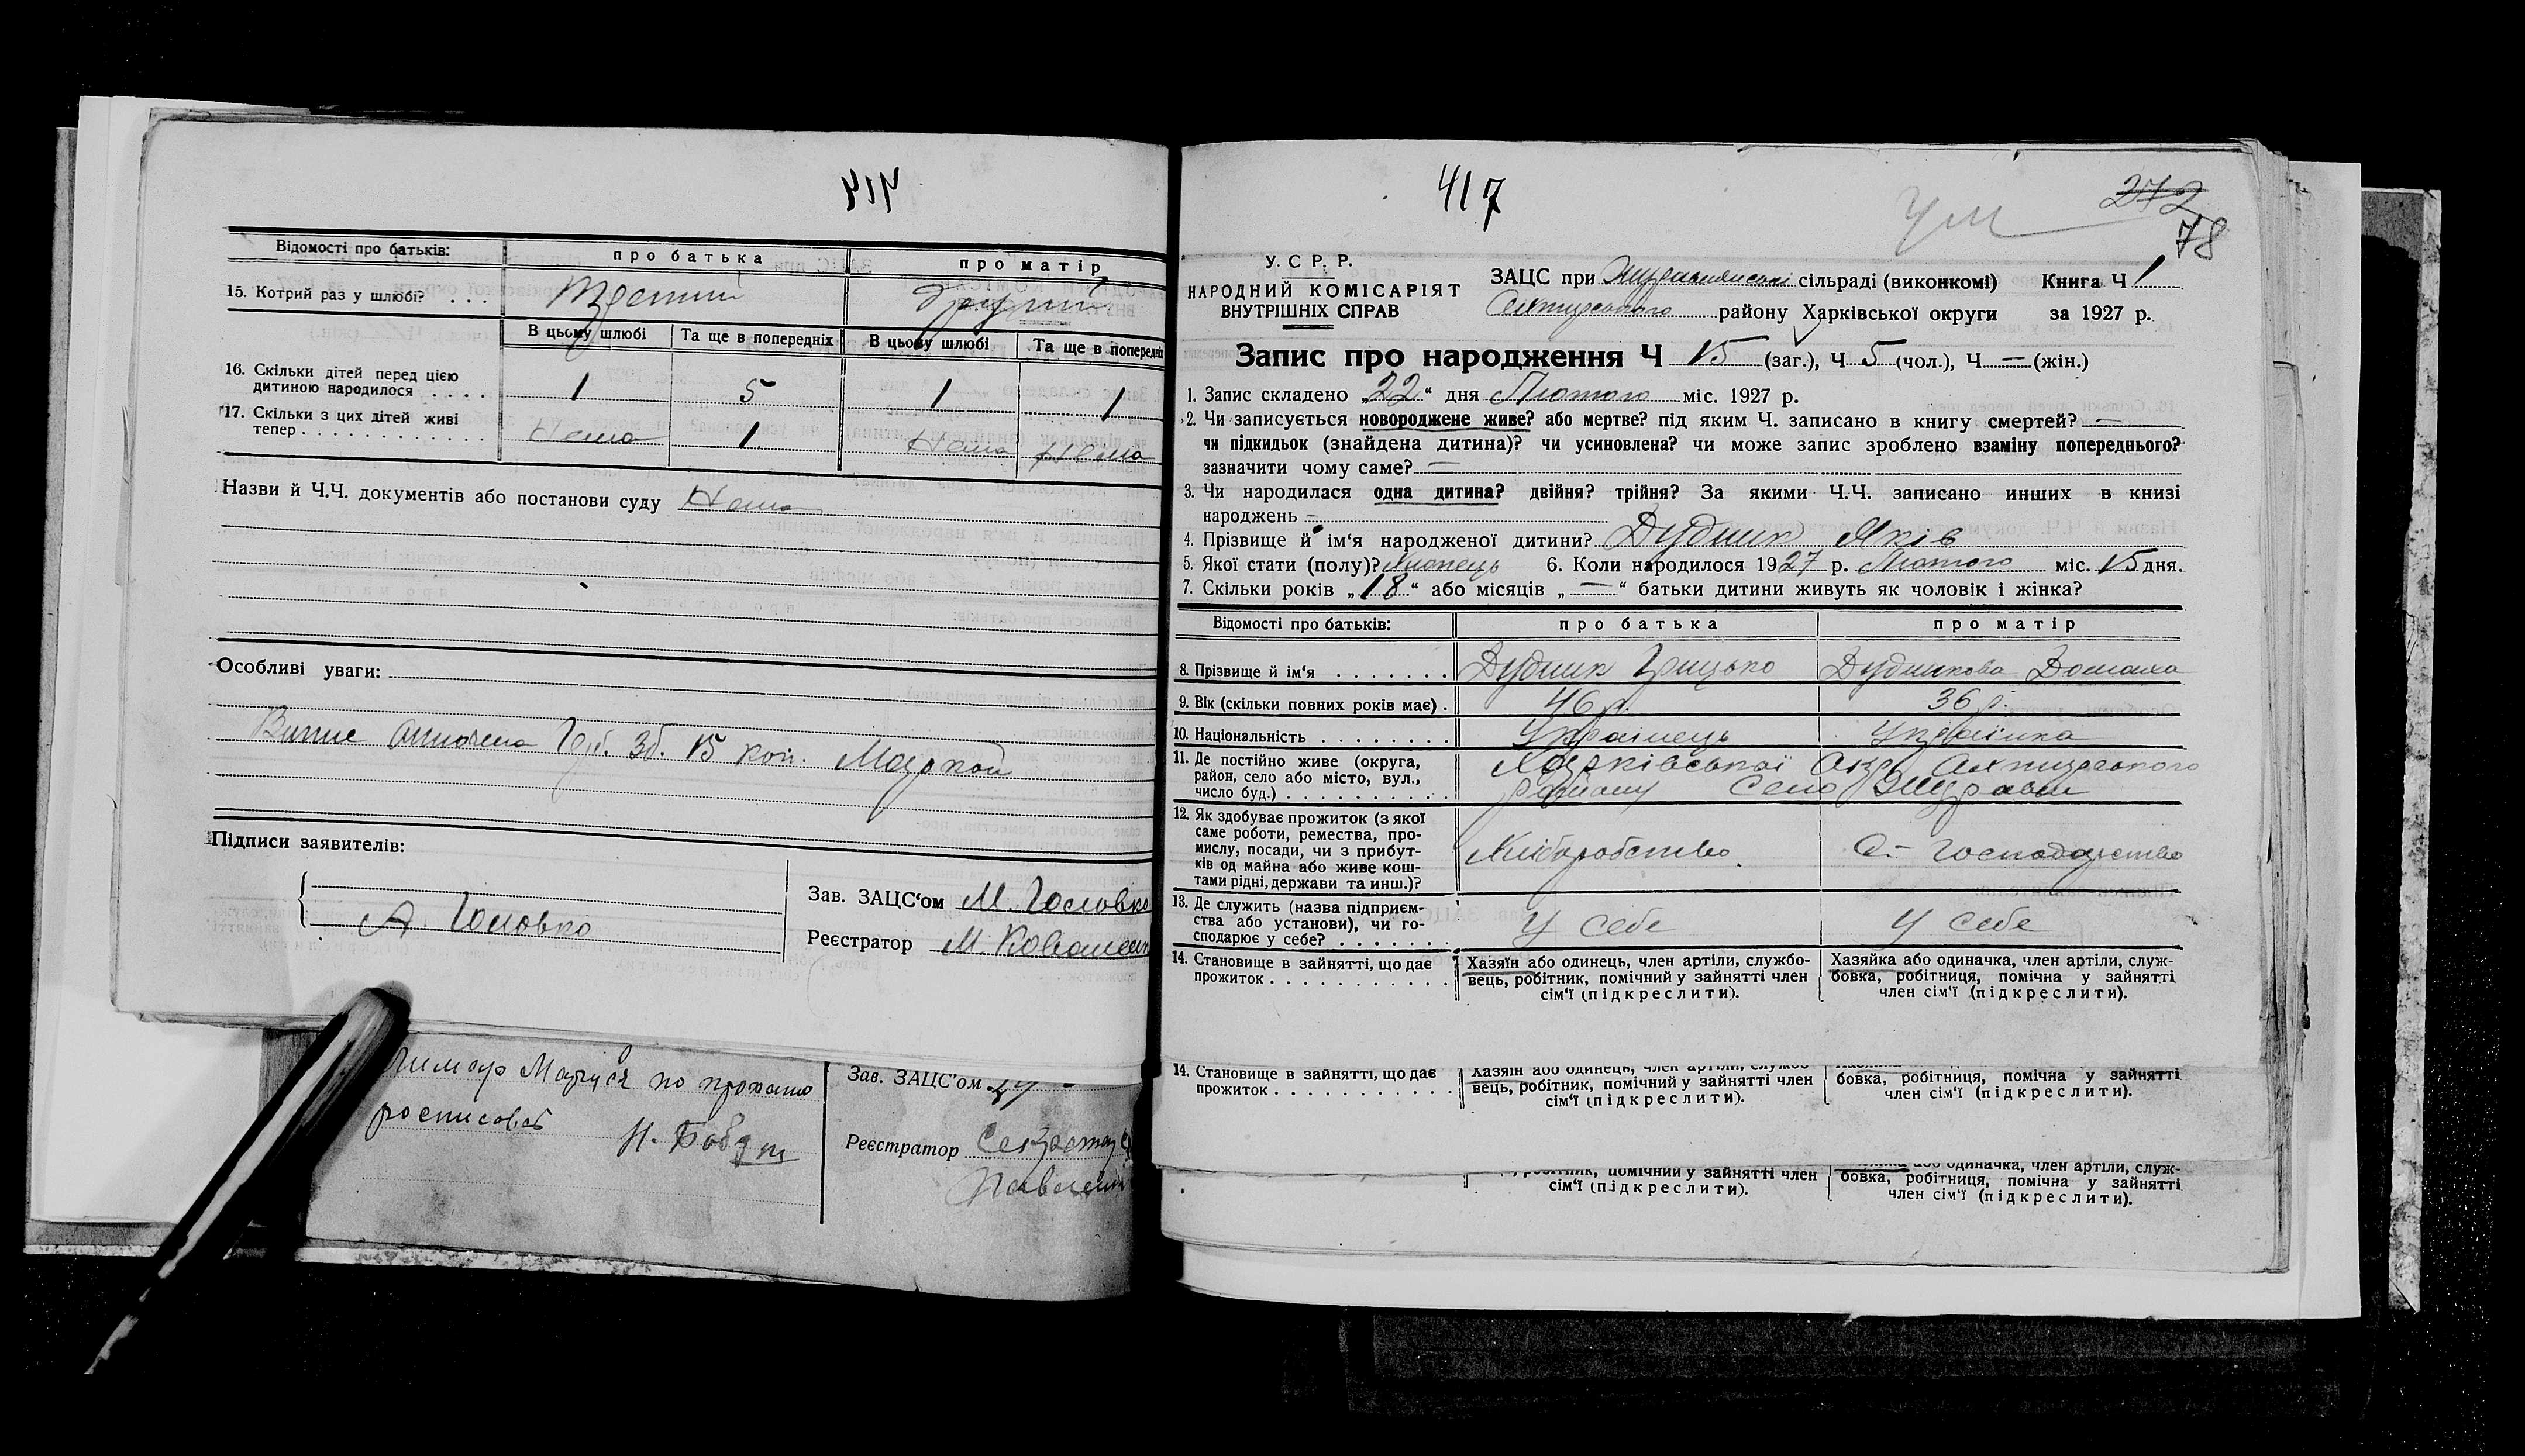 417
Відомості про батьків: про батька про матір
15. Котрий раз у шлюбі? . . . Третий другий
В цьому шлюбі Та ще в попередніх В цьому шлюбі Та ще в попередніх
16. Скільки дітей перед цією
дитиною народилося . . . . 1 5 1 1
17. Скільки з цих дітей живі
тепер . . . . . . . . . . . . Нема 1. Нема Нема
Назви й Ч.Ч. документів або постанови суду Нема
Особливі уваги:
Гер. Зб. 15 коп. Маркой
Підписи заявителів:
А. Головко
Зав. ЗАЦС‘ом М. Головко
Реєстратор М.
Лимар Маруся по прохано
росписовсь
Н.
Зав. ЗАЦС’ом
Реєстратор
417
272
78
У. С Р. Р.
НАРОДНИЙ КОМІСАРІЯТ
ВНУТРІШНІХ СПРАВ
ЗАЦС при сільраді (виконкомі) Книга Ч 1
району Харківської округи за 1927 р.
Запис про народження Ч 15 (заг.), Ч 5 (чол.), Ч — (жін.)
1. Запис складено „22“ дня Лютого міс. 1927 р.
2. Чи записується новороджене живе? або мертве? під яким Ч. записано в книгу смертей? —
чи підкидьок (знайдена дитина)? чи усиновлена? чи може запис зроблено взаміну попереднього?
зазначити чому саме? —
3. Чи народилася одна дитина? двійня? трійня? За якими Ч.Ч. записано инших в книзі
народжень –
4. Прізвище й ім‘я народженої дитини? Дудник Яків
5. Якої стати (полу)? Хлопець 6. Коли народилося 1927 р. Лютого міс. 15 дня.
7. Скільки років „18“ або місяців „—“ батьки дитини живуть як чоловік і жінка?
Відомості про батьків: про батька про матір
8. Прізвище й ім‘я . . . . . . . Дудник Грицько Дудникова Домаха
9. Вік (скільки повних років має) . 46 р. 36 р.
10. Національність . . . . . . . . Українець Українка
11. Де постійно живе (округа, Харківської Окр. Охтирського
район, село або місто, вул., району Село Журавне
число буд.) . . . . . . . . . .
12. Як здобуває прожиток (з якої
саме роботи, ремества, про-
мислу, посади, чи з прибут- Хліборобство С.- Господарство
ків од майна або живе кош-
тами рідні, держави та инш.)?
13. Де служить (назва підприєм-
ства або установи), чи го- У себе У себе
сподарює у себе? . . . . . . .
14. Становище в зайнятті, що дає Хазяїн або одинець, член артіли, службо- Хазяйка або одиначка, член артіли, служ-
прожиток . . . . . . . . . . . вець, робітник, помічний у зайнятті член бовка, робітниця, помічна у зайнятті
сім‘ї (підкреслити). член сім‘ї (підкреслити).
14. Становище в зайнятті, що дає
прожиток . . . . . . . . . . . вець, робітник, помічний у зайнятті член бовка, робітниця, помічна у зайнятті
сім‘ї (підкреслити). член сім‘ї (підкреслити).
робітник, помічний у зайнятті член бовка, робітниця, помічна у зайнятті
сім‘ї (підкреслити). член сім‘ї (підкреслити).